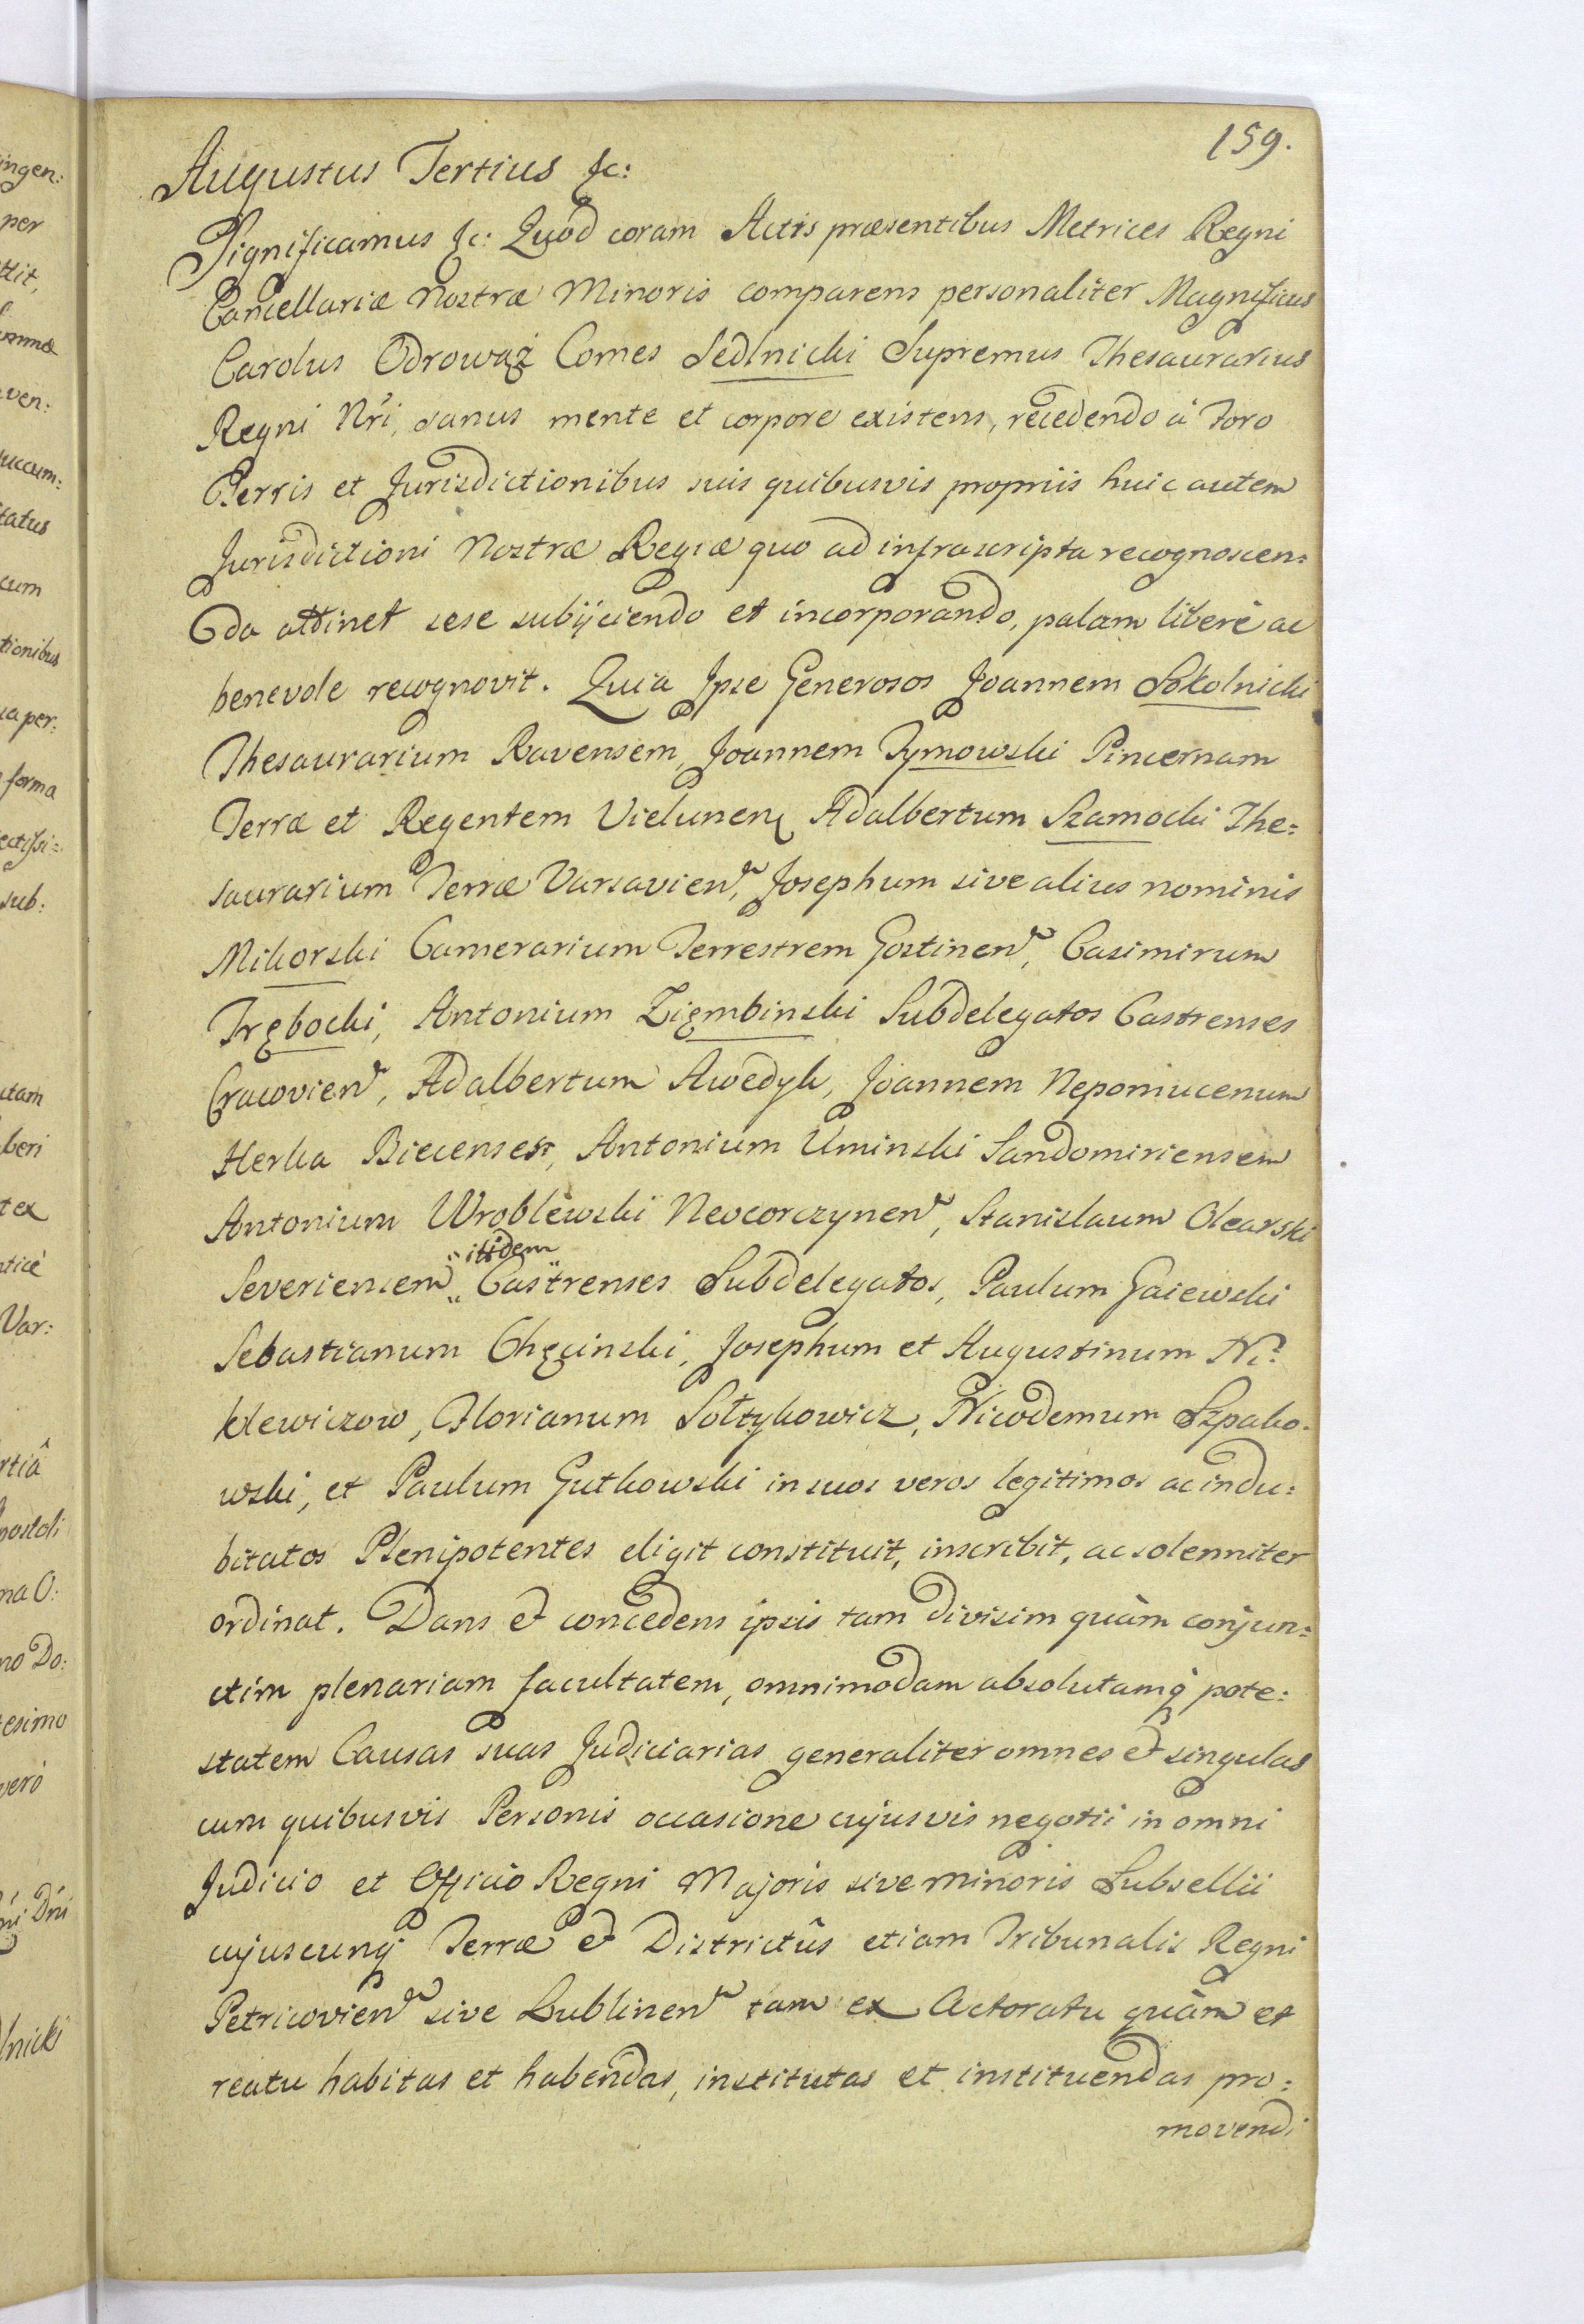 159.
Augustus Tertius &c:
Significamus &c: Quod coram Actis præsentibus Metrices Regni
Cancellariæ Nostræ Minoris comparens personaliter Magnificus
Carolus Odrowąż Comes Sedlnicki Supremus Thesaurarius
Regni Nri, sanus mente et corpore existens, recedendo à Foro
Terris et Jurisdictionibus suis quibusvis propriis huic autem
Jurisdictioni Nostræ Regiæ quo ad infrascripta recognoscen:
da attinet sese subijciendo et incorporando, palam liberè ac
benevole recognovit. Quia Ipse Generosos Joannem Sokolnicki
Thesaurarium Ravensem, Joannem Tymowski Pincernam
Terræ et Regentem Vielunen, Adalbertum Szamocki The:
saurarium Terræ Varsavien, Josephum sive alius nominis
Mikorski Camerarium Terrestrem Gostinen, Casimirum
Trębocki, Antonium Ziembinski Subdelegatos Castrenses
Cracovien, Adalbertum Awedyk, Joannem Nepomucenum
Herka Biecenses, Antonium Uminski Sandomiriensem
Antonium Wroblewski Neocorczynen, Stanislaum Olearski
itidem
Severiensem Castrenses Subdelegatos, Paulum Gaiewski
Sebastianum Chęcinski, Josephum et Augustinum Ni:
klewiczow, Florianum Sołtykowicz, Nicodemum Szpako:
wski, et Paulum Gutkowski in suos veros legitimos ac indu:
bitatos Plenipotentes eligit constituit, inscribit, ac solenniter
ordinat. Dans et concedens ipsis tam divisim quàm conjun:
ctim plenariam facultatem, omnimodam absolutamq pote:
statem Causas suas Judiciarias generaliter omnes et singulas
cum quibusvis Personis occasione cujusvis negotii in omni
Judicio et Officio Regni Majoris sive Minoris Subsellii
cujuscunq Terræ et Districtûs etiam Tribunalis Regni
Petricovien sive Lublinen tam ex Actoratu quàm et
reatu habitas et habendas, institutas et instituendas pro:
movendi